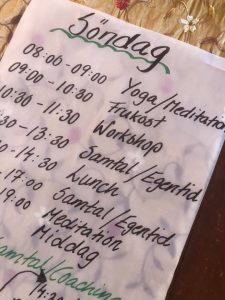 Söndag
08:00 - 09:00 Yoga/Meditation
09:00 - 10:30 Frukost
10:30 - 11:30 Workshop
:30 - 13:30 Samtal/Egentid
- 14:30 Lunch
- 17:00 Samtal/Egentid
19:00 Meditation
Middag
Samtal/Coaching
14:30